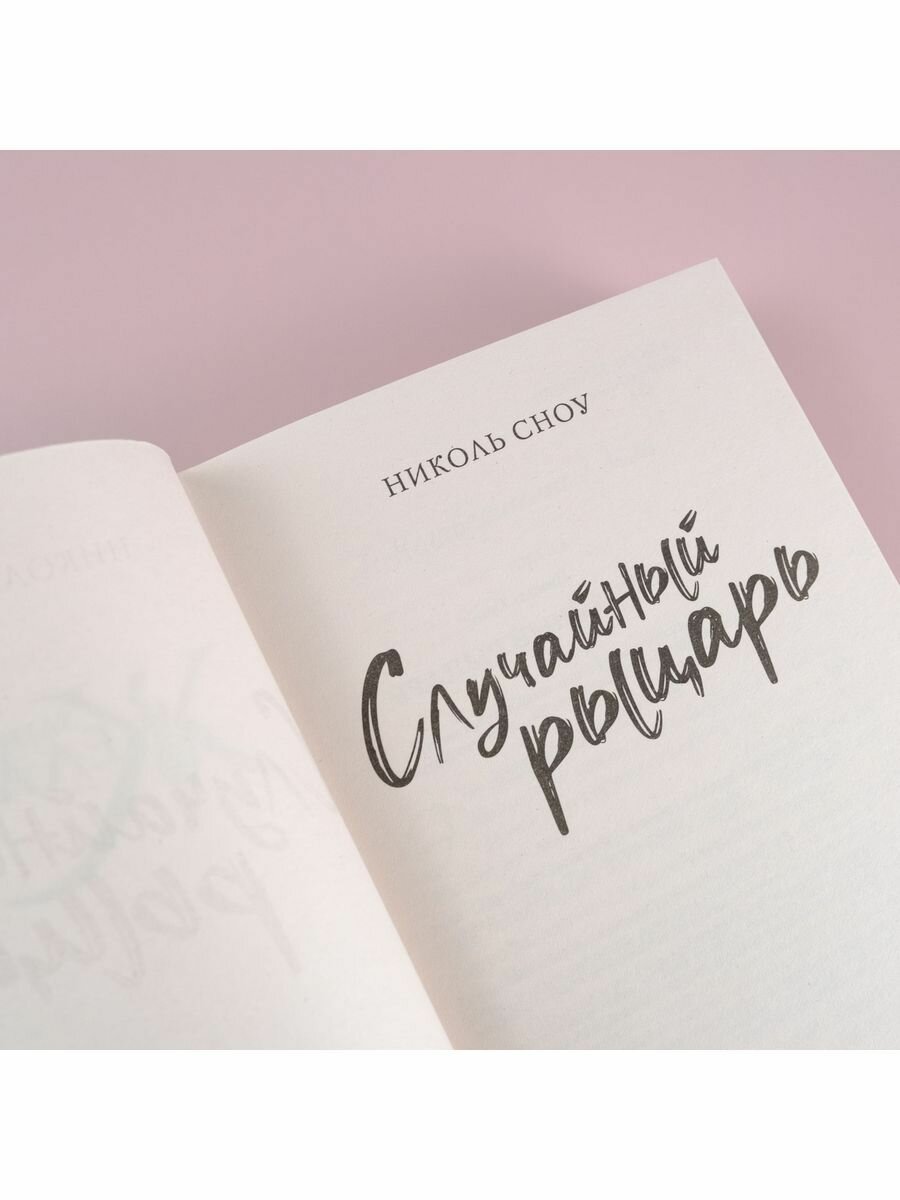 НИКОЛЬ СНОУ
Случайный
рыцарь